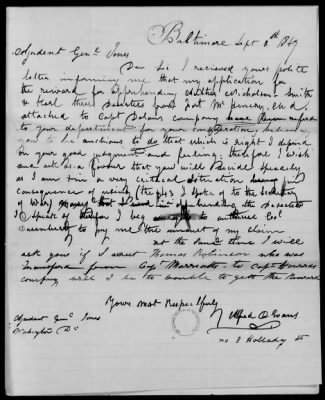 Baltimore Sept 8th 1849
Adjudent Genl Jones
Dear Sir I recieved your polite
letter informing me that my application for
the reward for apprehending Nicholson Smith
& Earl three Deserters from Fort McHenry, Md.
attached to Capt company have been refered
to your department for your consideration
you to be anctious to do that which is right I depend
on your good judgment and feeling, therefore I wish
and ask as a favor that you will decide speedily
as I am in a very critical situation
consequence of using the $93 I spoke of to the Secretary
of War in apprehending the deserters
I speak of therefor I beg to authorise Col
to pay me the amount of my claim
at the same time I will
ask you if I arrest Thomas Robinson who was
transferd from Capt to Capt
company will I be to get the reward
Yours most Respectfully
Alfred D Evans
no 8 Holladay st
Adjudent Genl Jones
Washington DC